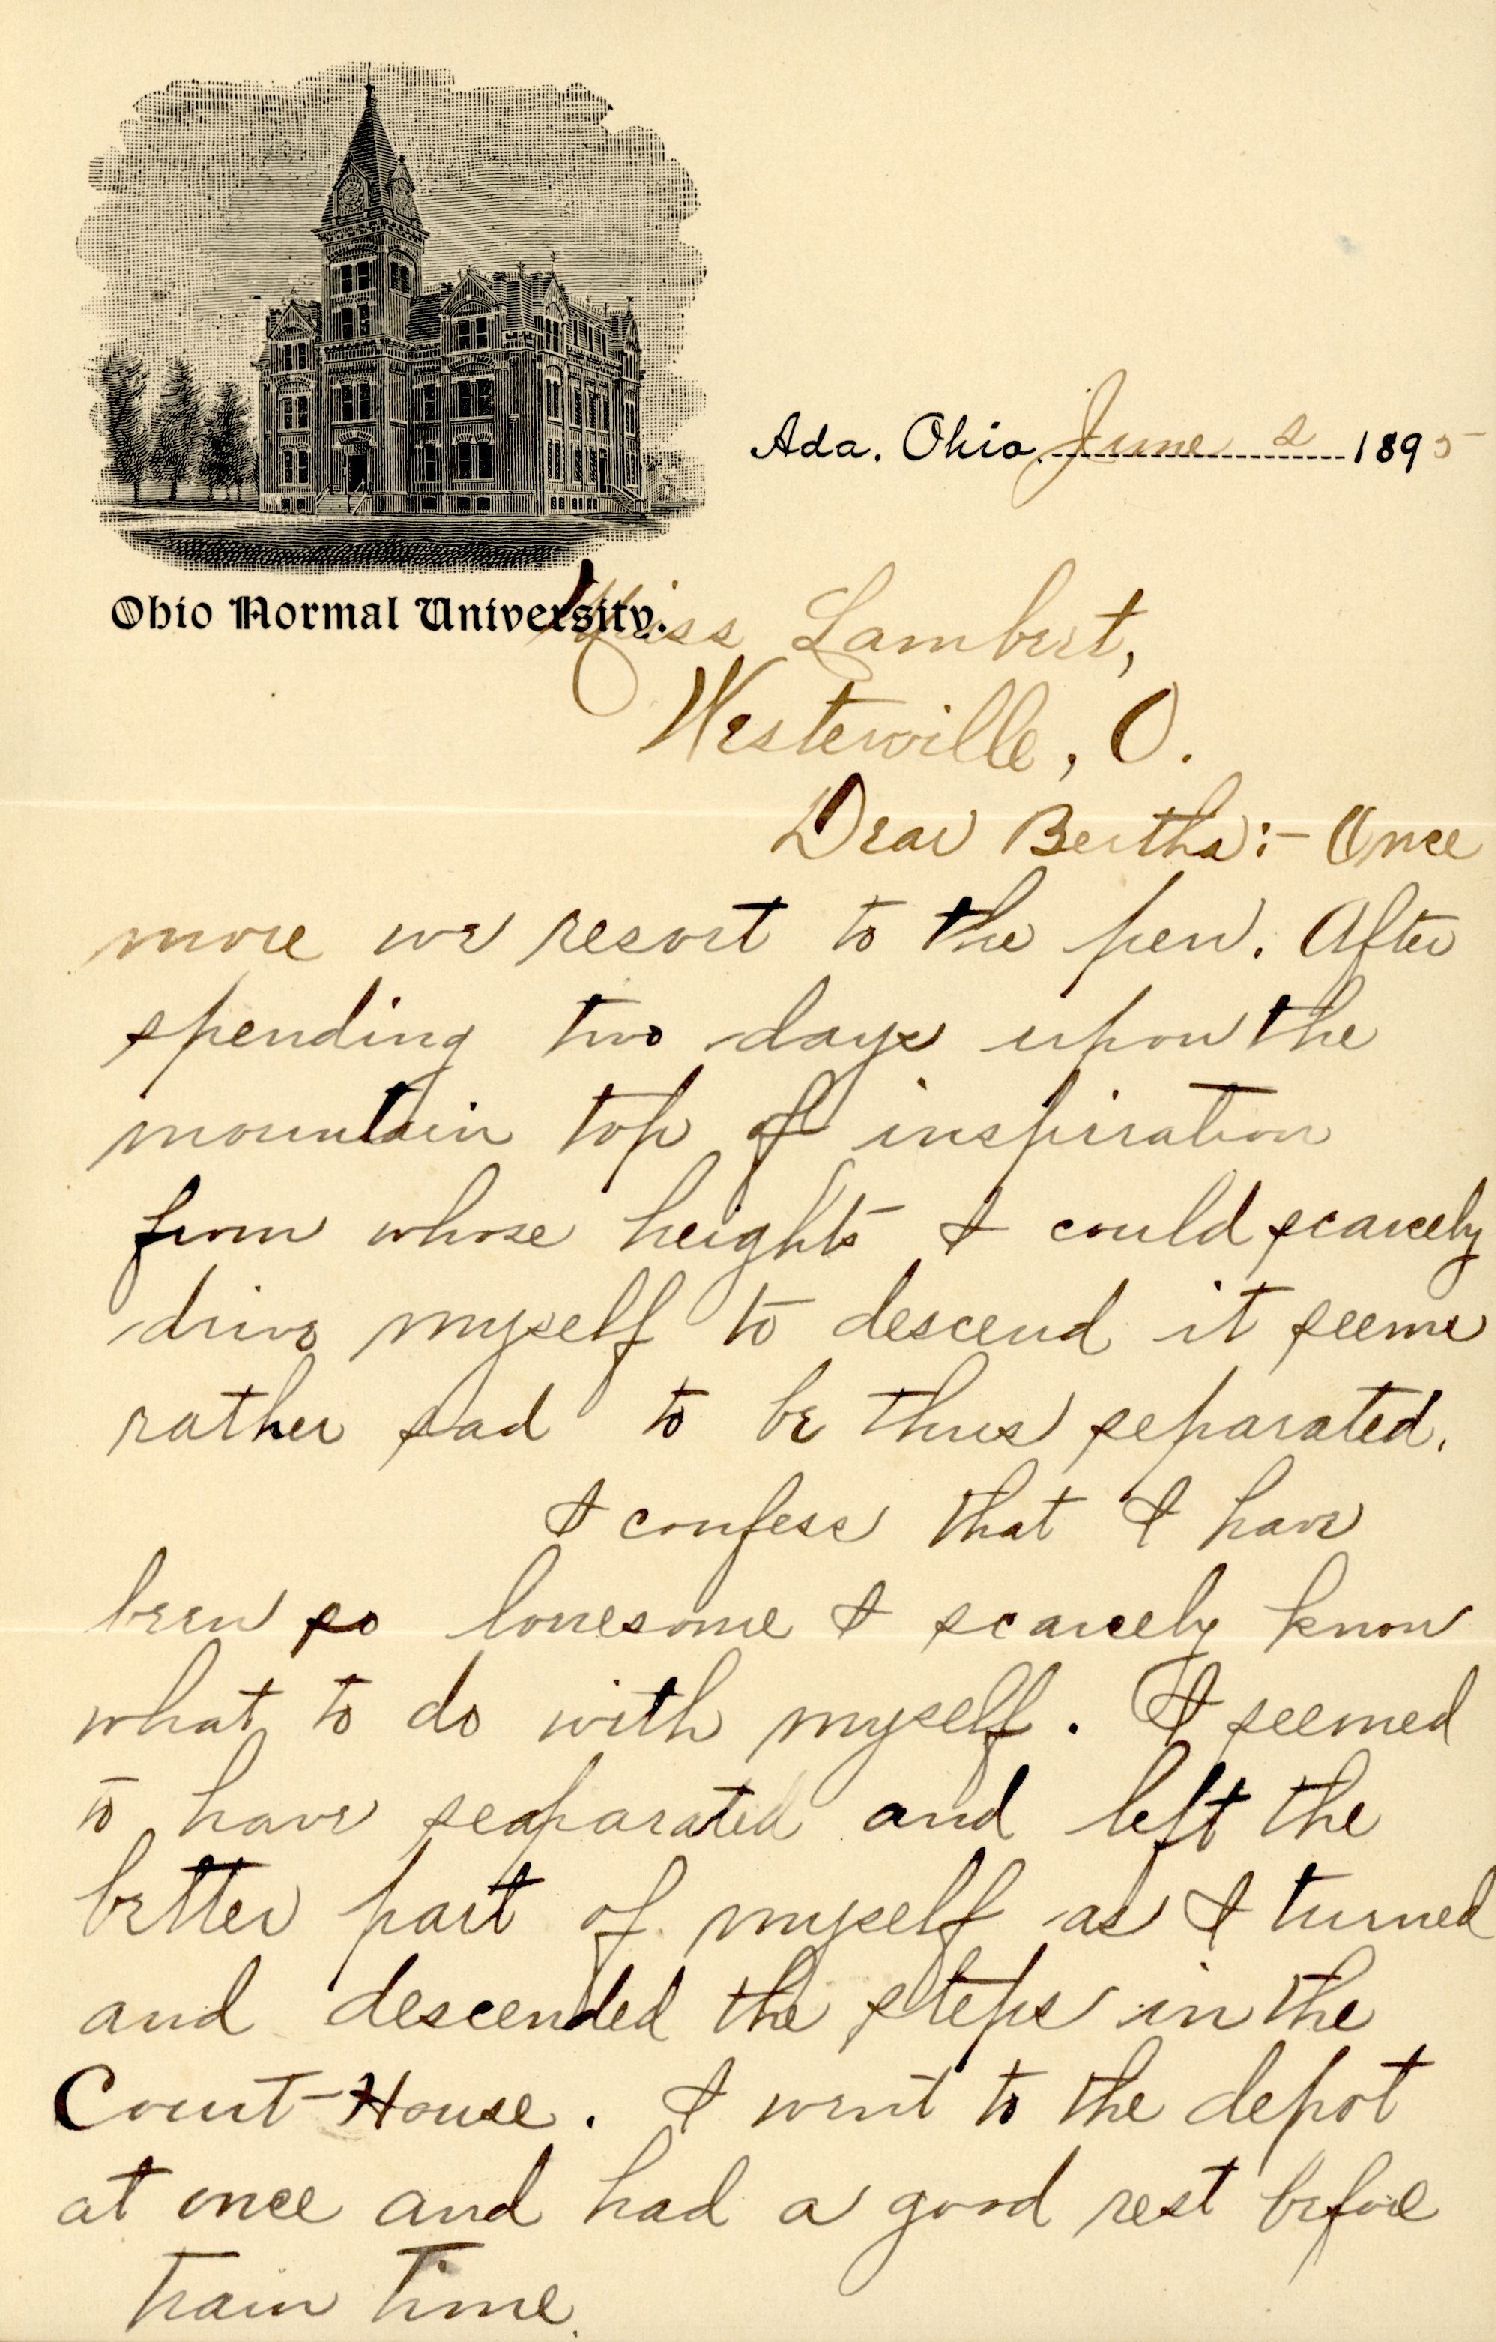 Ada, Ohio, June 2 1895
Ohio Normal University.
Miss Lambert,
Westerville, O.
Dear Bertha:- Once
more we resort to the pen. After
spending two days upon the
mountain top of inspiration
from whose heights I could scarcely
drive myself to descend it seems
rather sad to be thus separated.
I confess that I have
been so lonesome I scarcely know
what to do with myself. I seemed
to have seaparated and left the
better part of myself as I turned
and descended the steps in the
Court-House. I went to the depot
at once and had a good rest before
train time.